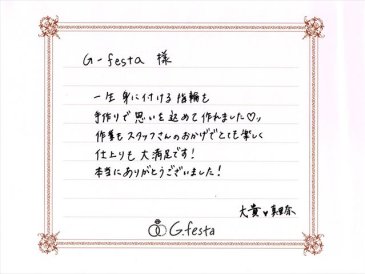 G-festa 様
一生身に付ける指輪を
手作りで思いを込めて作れました♡!
作業もスタッフさんのおかげでとても楽しく
仕上りも大満足です!
本当にありがとうございました!
大貴♥真里奈
G.festa